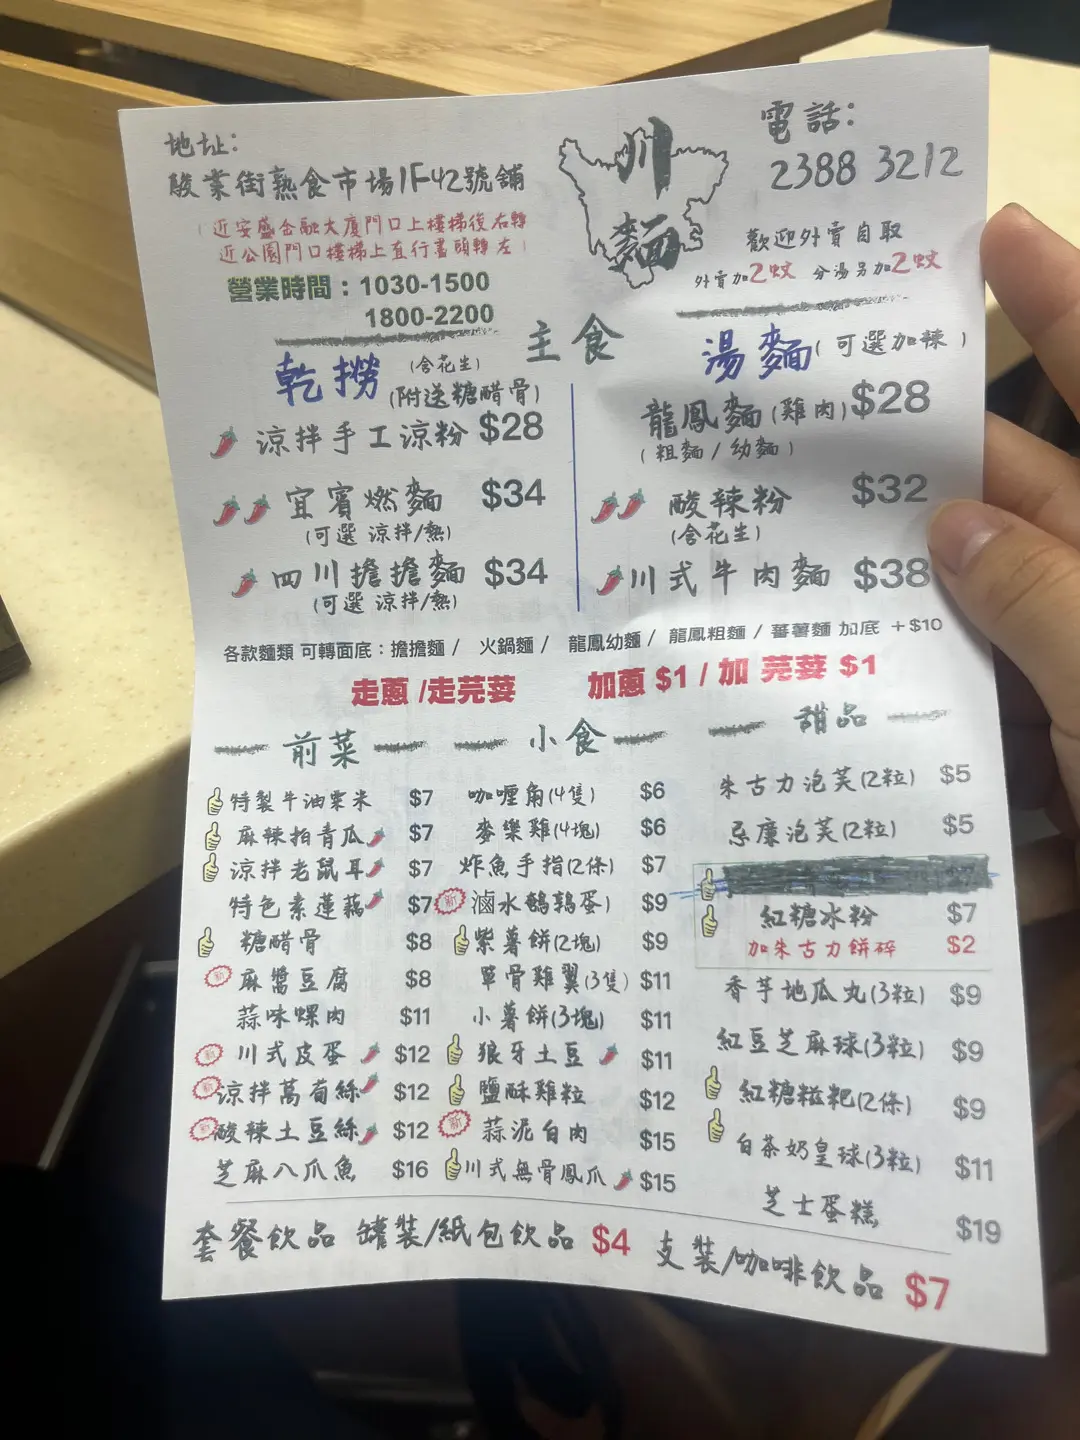 地址:
駿業街熟食市場1F42號舖
(近安盛金融大廈門口上樓梯後右轉
近公園門口樓梯上直行盡頭轉左)
營業時間:1030-1500
1800-2200
川
麵
電話:
2388 3212
歡迎外賣自取
外賣加2蚊 分湯另加2蚊
主食
乾撈 (含花生)
(附送糖醋骨)
🌶涼拌手工涼粉 $28
宜賓燃麵 $34
(可選 涼拌/熱)
四川擔擔麵 $34
(可選 涼拌/熱)
湯麵 (可選加辣)
龍鳳麵(雞肉) $28
(粗麵/幼麵)
酸辣粉 $32
(含花生)
川式牛肉麵 $38
各款麵類 可轉面底:擔擔麵 / 火鍋麵 / 龍鳳幼麵 / 龍鳳粗麵 / 蕃薯麵 加底 +$10
走蔥 /走芫荽 加蔥 $1 / 加 芫荽 $1
前菜
特製牛油粟米 $7
麻辣拍青瓜 $7
涼拌老鼠耳 $7
特色素蓮藕 $7
糖醋骨 $8
新 麻醬豆腐 $8
蒜味螺肉 $11
新 川式皮蛋 $12
新 涼拌萵荀絲 $12
新 酸辣土豆絲 $12
芝麻八爪魚 $16
小食
咖喱角(4隻) $6
麥樂雞(4塊) $6
炸魚手指(2條) $7
新 滷水鵪鶉蛋) $9
紫薯餅(2塊) $9
單骨雞翼(3隻) $11
小薯餅(3塊) $11
狼牙土豆 $11
鹽酥雞粒 $12
新 蒜泥白肉 $15
川式無骨鳳爪 $15
甜品
朱古力泡芙(2粒) $5
忌廉泡芙(2粒) $5
紅糖冰粉 $7
加朱古力餅碎 $2
香芋地瓜丸(3粒) $9
紅豆芝麻球(3粒) $9
紅糖糍粑(2條) $9
白茶奶皇球(3粒) $11
芝士蛋糕 $19
套餐飲品 罐裝/紙包飲品 $4 支裝/咖啡飲品 $7